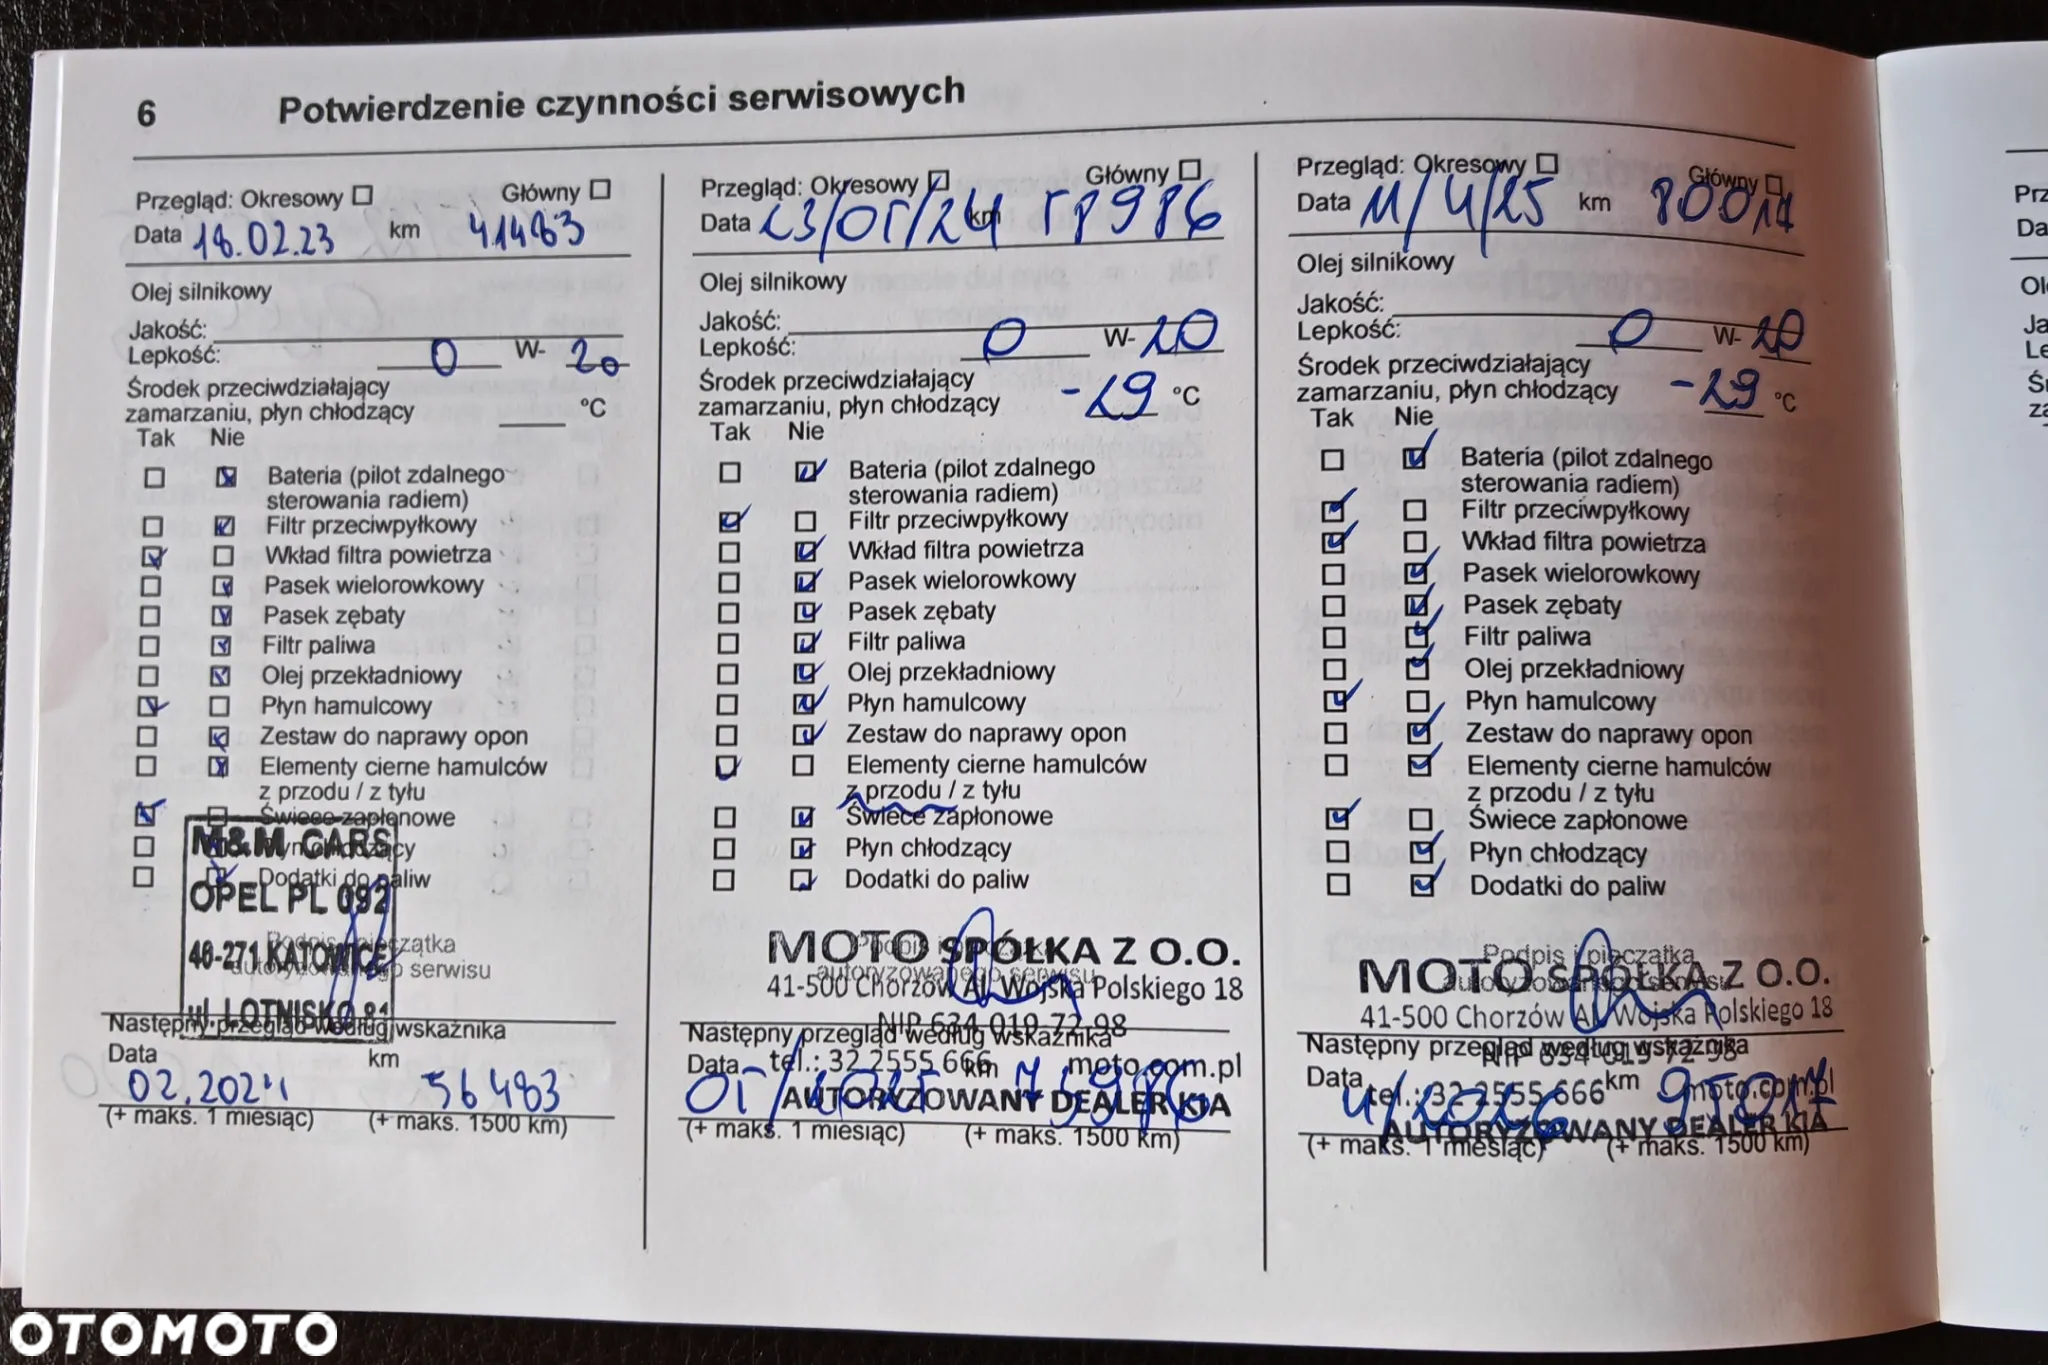 6 Potwierdzenie czynności serwisowych
Przegląd: Okresowy Główny
Data 18.02.23 km 41483
Olej silnikowy
Jakość:
Lepkość: 0 W- 20
Środek przeciwdziałający
zamarzaniu, płyn chłodzący °C
Tak Nie
Bateria (pilot zdalnego
sterowania radiem)
Filtr przeciwpyłkowy
Wkład filtra powietrza
Pasek wielorowkowy
Pasek zębaty
Filtr paliwa
Olej przekładniowy
Płyn hamulcowy
Zestaw do naprawy opon
Elementy cierne hamulców
z przodu / z tyłu
Świece zapłonowe
Płyn chłodzący
Dodatki do paliw
M&M CARS
OPEL PL 092
40-271 KATOWICE
ul. LOTNISKO 81
Podpis i pieczątka
autoryzowanego serwisu
Następny przegląd według wskaźnika
Data km
02.2024 56483
(+ maks. 1 miesiąc) (+ maks. 1500 km)
Przegląd: Okresowy Główny
Data 23/05/24 km 58986
Olej silnikowy
Jakość:
Lepkość: 0 W- 20
Środek przeciwdziałający
zamarzaniu, płyn chłodzący -29 °C
Tak Nie
Bateria (pilot zdalnego
sterowania radiem)
Filtr przeciwpyłkowy
Wkład filtra powietrza
Pasek wielorowkowy
Pasek zębaty
Filtr paliwa
Olej przekładniowy
Płyn hamulcowy
Zestaw do naprawy opon
Elementy cierne hamulców
z przodu / z tyłu
Świece zapłonowe
Płyn chłodzący
Dodatki do paliw
Podpis i pieczątka
autoryzowanego serwisu
MOTO SPÓŁKA Z O.O.
41-500 Chorzów Al. Wojska Polskiego 18
NIP 634 019 72 98
tel.: 32 2555 666 moto.com.pl
AUTORYZOWANY DEALER KIA
Następny przegląd według wskaźnika
Data 05/2025 km 73986
(+ maks. 1 miesiąc) (+ maks. 1500 km)
Przegląd: Okresowy Główny
Data 11/4/25 km 80017
Olej silnikowy
Jakość:
Lepkość: 0 W- 20
Środek przeciwdziałający
zamarzaniu, płyn chłodzący -29 °C
Tak Nie
Bateria (pilot zdalnego
sterowania radiem)
Filtr przeciwpyłkowy
Wkład filtra powietrza
Pasek wielorowkowy
Pasek zębaty
Filtr paliwa
Olej przekładniowy
Płyn hamulcowy
Zestaw do naprawy opon
Elementy cierne hamulców
z przodu / z tyłu
Świece zapłonowe
Płyn chłodzący
Dodatki do paliw
Podpis i pieczątka
autoryzowanego serwisu
MOTO SPÓŁKA Z O.O.
41-500 Chorzów Al. Wojska Polskiego 18
NIP 634 019 72 98
tel.: 32 2555 666 moto.com.pl
AUTORYZOWANY DEALER KIA
Następny przegląd według wskaźnika
Data 4/2026 km 95017
(+ maks. 1 miesiąc) (+ maks. 1500 km)
OTOMOTO